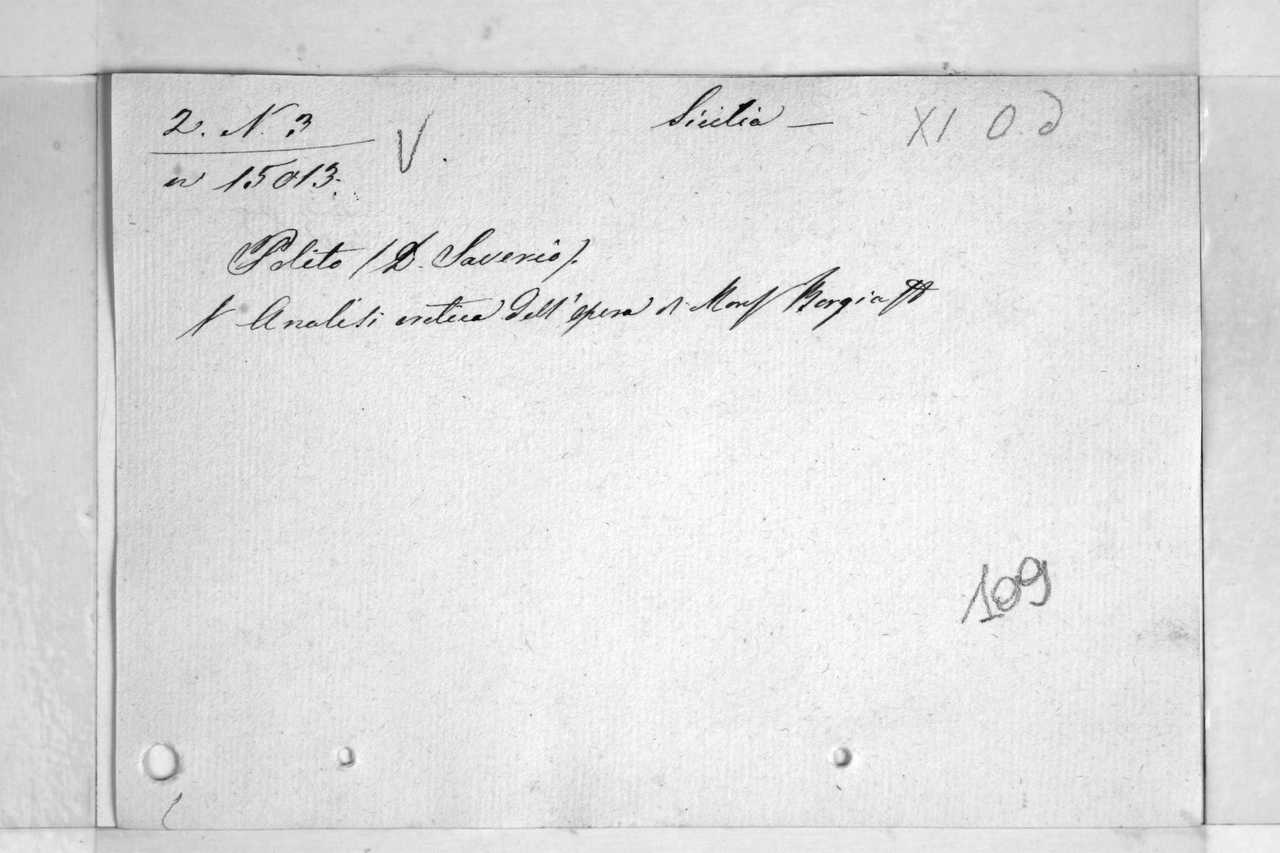 2. N. 3
Sicilia —
XI O. d
V
n 15013.
Polito (D. Saverio).
Analisi critica dell'opera di Mons Borgia
109